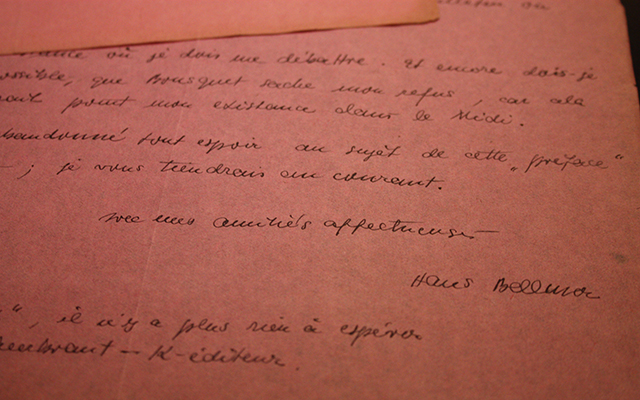 où je dois me débattre. Et encore dois-je
que Bousquet sache mon refus, car cela
point mon existence dans le Midi.
abandonné tout espoir au sujet de cette „préface“
; je vous tiendrais au courant.
avec mes amitiés affectueuses
Hans Bellmer
“, il n'y a plus rien à espérer
– K-éditeur.